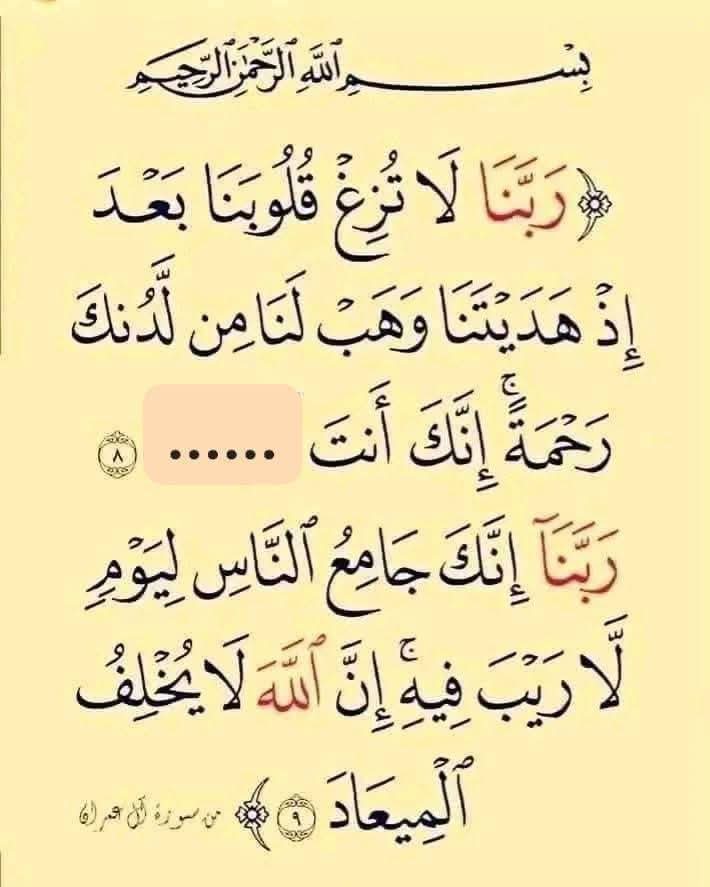 بِسْمِ ٱللَّهِ ٱلرَّحْمَٰنِ ٱلرَّحِيمِ
﴿رَبَّنَا لَا تُزِغْ قُلُوبَنَا بَعْدَ
إِذْ هَدَيْتَنَا وَهَبْ لَنَا مِن لَّدُنكَ
رَحْمَةً ۚ إِنَّكَ أَنتَ ...... ٨
رَبَّنَآ إِنَّكَ جَامِعُ ٱلنَّاسِ لِيَوْمٍ
لَّا رَيْبَ فِيهِ ۚ إِنَّ ٱللَّهَ لَا يُخْلِفُ
ٱلْمِيعَادَ ٩ ﴾ من سورة آل عمران